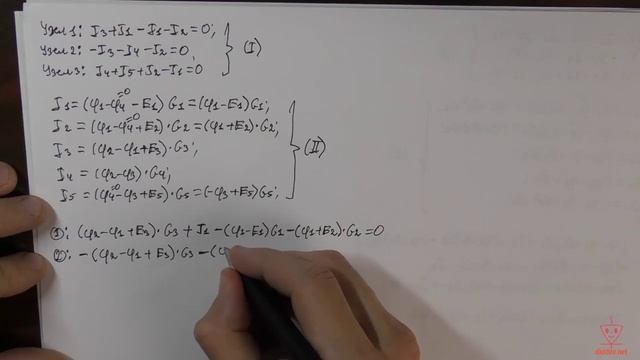 Узел 1: I3+J1-I1-I2=0;
Узел 2: -I3-I4-J2=0;
Узел 3: I4+I5+J2-J1=0
} (I)
I1=(φ1-φ4-E1)G1=(φ1-E1)G1;
=0
I2=(φ1-φ4+E2)·G2=(φ1+E2)·G2;
=0
I3=(φ2-φ1+E3)·G3;
I4=(φ2-φ3)·G4;
I5=(φ4-φ3+E5)·G5=(-φ3+E5)G5;
=0
} (II)
①: (φ2-φ1+E3)·G3+J1-(φ1-E1)G1-(φ1+E2)·G2=0
②: -(φ2-φ1+E3)·G3-(φ
diodov.net